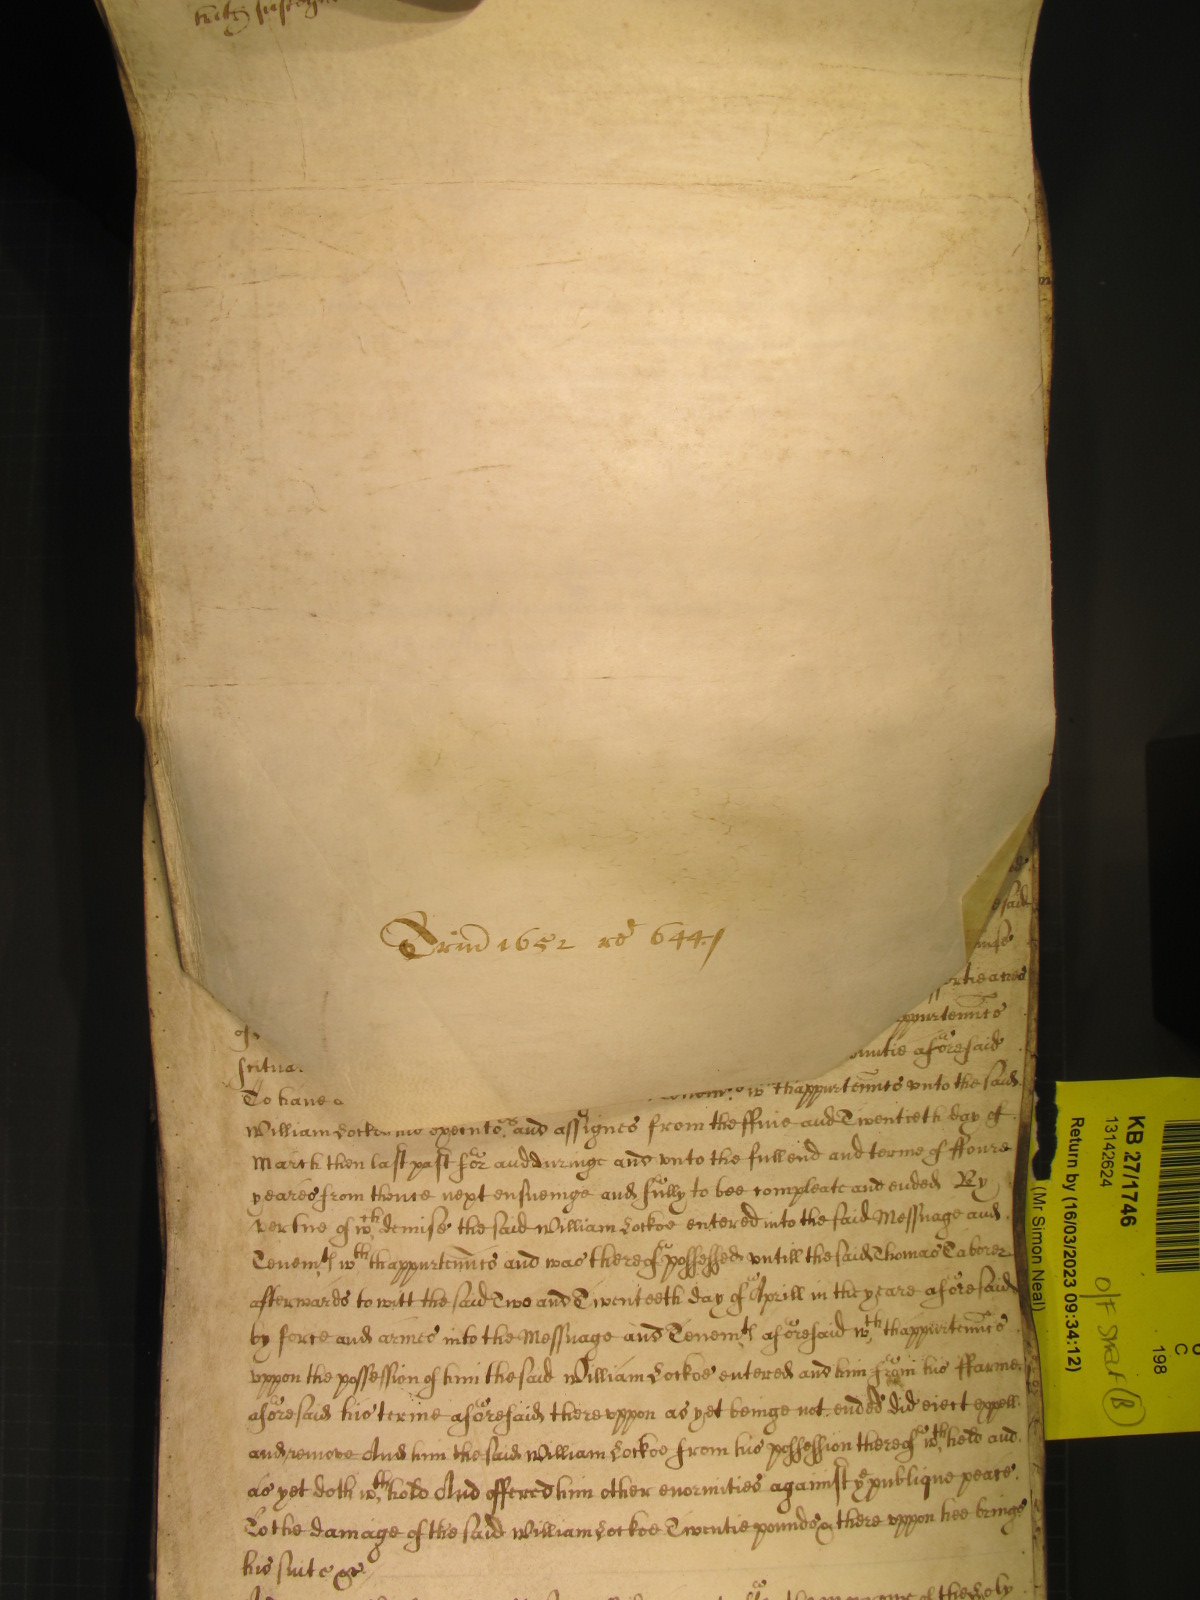 Trin 1652 ro 644
esaid
mise
ppurtennces
ountie aforesaid
scitua
To have
w thappurtennces unto the said
William Lockoe his executors and assignes from the ffive and Twentieth day of
March then last past for and duringe and unto the full end and terme of ffoure
yeares from thence next ensueinge and fully to bee compleate and ended By
vertue of wch demise the said William Lockoe entered into the said Messuage and
Tenemts wth thappurtennces and was thereof possessed untill the said Thomas Taborer
afterwards to witt the said Two and Twenteeth day of Aprill in the yeare aforesaid
by force and armes into the Messuage and Tenemts aforesaid wth thappurtennces
uppon the possession of him the said William Lockoe entered and him from his ffarme
aforesaid his terme aforesaid thereuppon as yet beinge not ended did eiect expell
and remove And him the said William Lockoe from his possession thereof wthheld and
as yet doth wthhold And offered him other enormities against ye publique peace
To the damage of the said William Lockoe Twentie pounds & thereuppon hee brings
his suite &c
of the Holy
KB 27/1746
13142624
Return by (16/03/2023 09:34:12)
(Mr Simon Neal)
C
198
O/F Strat (B)